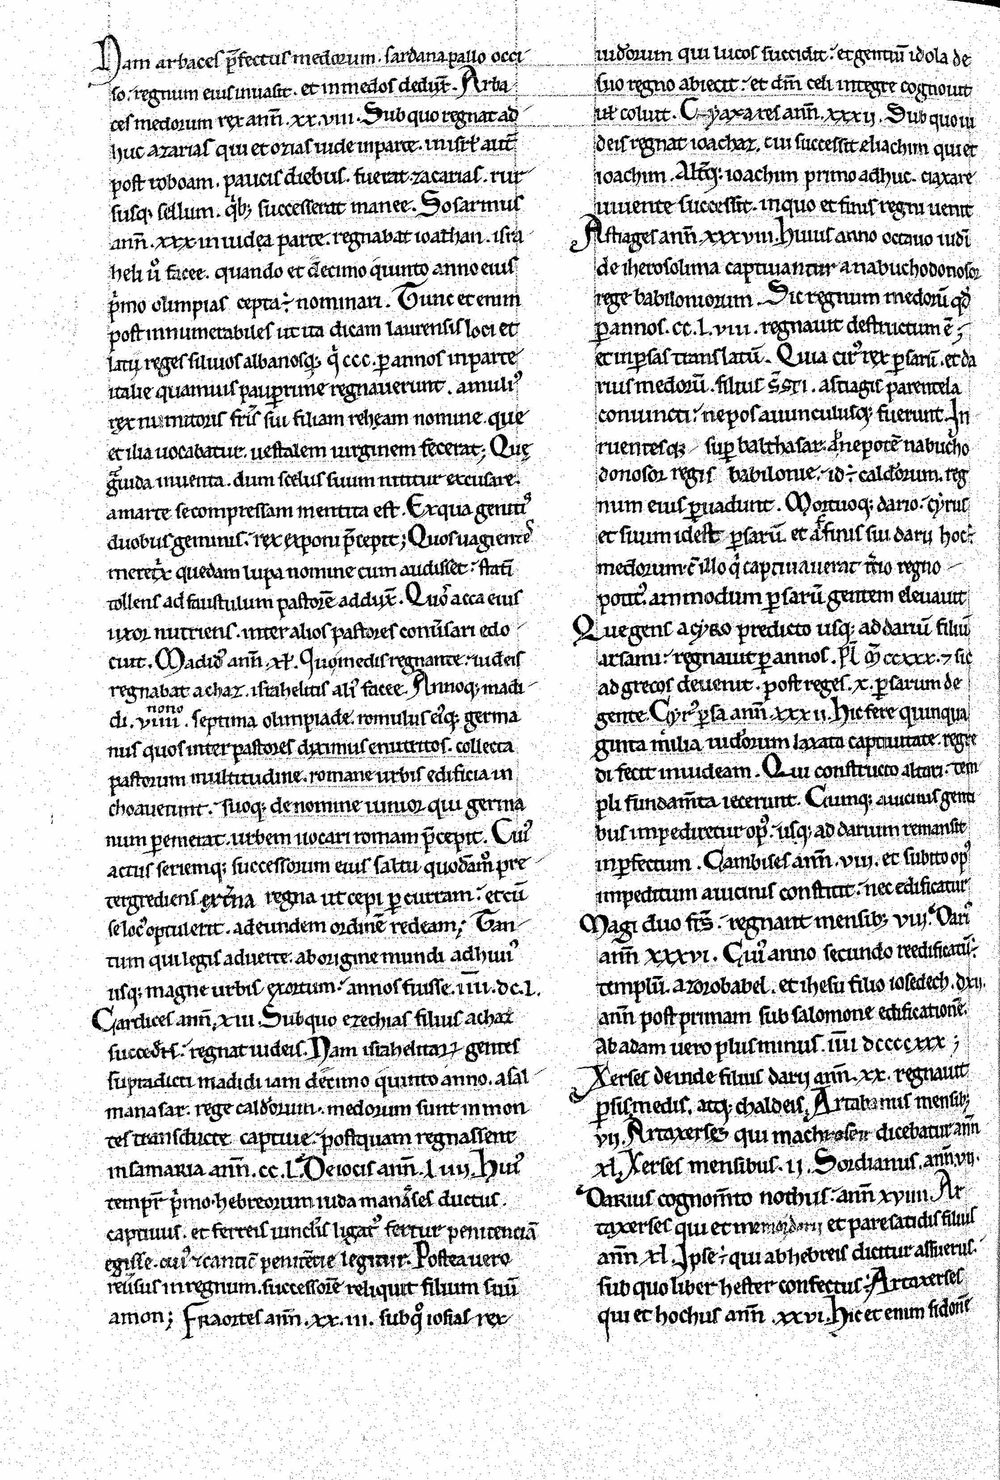 Nam arbaces p̄fectus medorum. sardanapallo occi
so. regnum eius inuasit. et in medos dedux̄. Arba
ces medorum rex ann̄. xx.viii. Sub quo regnat ad
huc azarias qui et ozias iude in parte. in isrl̄ aut̄
post roboam. paucis diebus. fuerat zacarias. rur
susq; sellum. qb; successerat manee. Sosarmus
ann̄. xxx in iudea parte. regnabat ioathan. isra
heli ū facee. quando et decimo quinto anno eius
p̄mo olimpias cepta: nominari. Tunc et enim
post innumerabiles ut ita dicam laurensis loci et
latii reges siluios albanosq; q̄ ccc. p annos in parte
italie quamuis paup̄rime regnauerunt. amuli᾽
rex numitoris fr̄is sui filiam reheam nomine. que
et ilia uocabatur. uestalem uirginem fecerat; Que
g̃uida inuenta. dum scelus suum nititur excusare.
a marte se compressam mentita est. Ex qua geniti᾽
duobus geminis. rex exponi p̄cepit; Quos uagiente᾽
meretx̄ quedam lupa nomine cum audisset. stati᷉
tollens ad faustulum pastorē addux̄. Quo᾽ acca eius
uxor nutriens. inter alios pastores con᾽uersari edo
cuit. Madid᾽ ann̄. xl. Quo medis regnante. iudeis
regnabat achaz. israhelitis ali᾽ facee. Annoq; madi
di. viiii nono. septima olimpiade. romulus ei᾽q; germa
nus quos inter pastores diximus enutritos. collecta
pastorum multitudine. romane urbis edificia in
choauerunt. suoq; de nomine iunior qui germa
num p̄emerat. urbem uocari romam p̄cepit. Cui᾽
actus seriemq; successorum eius saltu quodam᾽ pre
tergrediens. ext̄na regna ut cepi p curram. et cū
se loc᾽ optulerit. ad eundem ordinē redeam; Tan
tum qui legis aduerte. ab origine mundi ad hui᾽
usq; magne urbis exortum. annos fuisse. iiii. dc. l.
Cardices ann̄. xiii. Sub quo ezechias filius achaz
succed̄s. regnat iudeis. Nam israhelitarꝝ gentes
supradicti madidi iam decimo quinto anno. a sal
manasar. rege caldeorum. medorum sunt in mon
tes transducte captiue. postquam regnassent
in samaria ann̄. cc. l. Deiocis ann̄. l iiii. Hui᾽
tempr̄ p̄mo. hebreorum iuda manasses ductus
captiuus. et ferreis uinclis ligat᾽ fertur penitenciā
egisse. cui᾽ et cantic̄ penitētie legitur. Postea uero
reu᾽sus in regnum. successorē reliquit filium suū
amon; Fraortes ann̄. xx. iii. sub q᾽ iosias rex
iudeorum qui lucos succidit. et gentiū idola de
suo regno abiecit. et dm̄ celi integre cognouit
ul̄ coluit. Cyaxares ann̄. xxxii. Sub quo iu
deis regnat ioachaz. cui successit eliachim qui et
ioachim. Altq; ioachim primo adhuc. ciaxare
uiuente successit. in quo et finis regni uenit
Astiages ann̄. xxxviii. Huius anno octauo iudi᾽
de iherosolima captiuantur a nabuchodonosor
rege babiloniorum. Sic regnum medorū qd̄
p annos. cc. l. viii. regnauit destructum ē;
et in p̄sas translatū. Quia cir᾽ rex p̄sarū. et da
rius medorū. filius asti. astiagis parentela
coniuncti. nepos auunculusq; fuerunt. In
ruentesq; sup balthasar. p̄nepotē nabucho
donosor regis babilonie. id ÷ caldeorum. reg
num eius p̄uadunt. Mortuoq; dario. cyrus
et suum idest p̄sarū. et affinis sui darii hoc ÷
medorum. c̄ illo q᾽ captiuauerat tertio regno
potit᾽. ammodum p̄sarū gentem eleuauit
Que gens a cyro predicto usq; ad dariū filiū
arsami. regnauit p annos. Pl᾽ m̄ ccxxx. ⁊ sic
ad grecos deuenit. post reges. x. p̄sarum de
gente. Cyr᾽ p̄sa ann̄. xxx ii. Hic fere quinqua
ginta milia iudeorum laxata captiuitate. regre
di fecit in iudeam. Qui constructo altari. tem
pli fundam̄ta iecerunt. Cumq; a uicinis genti
bus impediretur op᾽. usq; ad darium remansit
inp̄fectum. Cambises ann̄. viii. et subito op᾽
impeditum a uicinis constitit. nec edificatur
Magi duo frs̄. regnant mensib; vii. Dari᾽
ann̄ xxxvi. Cui᾽ anno secundo reedificatū ÷
templū. a zorobabel. et ihesu filio iosedech. dxii.
ann̄ post primam sub salomone edificationē.
Ab adam uero plus minus. iiii dccccxxx;
Xerses deinde filius darii ann̄. xx. regnauit
p̄sis medis. atq; chaldeis. Artabanus mensib;
vii. Artaxerses qui machrosen dicebatur ann̄
xl. Xerses mensibus. ii. Sordianus. ann̄. vii.
Darius cognom̄to nothus. ann̄ xviiii. Ar
taxerses qui et memordarii et paresatidis filius
ann̄ xl. Ipse ÷ qui ab hebreis dicitur assuerus.
sub quo liber hester confectus. Artaxerses
qui et hochus ann̄. xxvi. Hic et enim sidonē